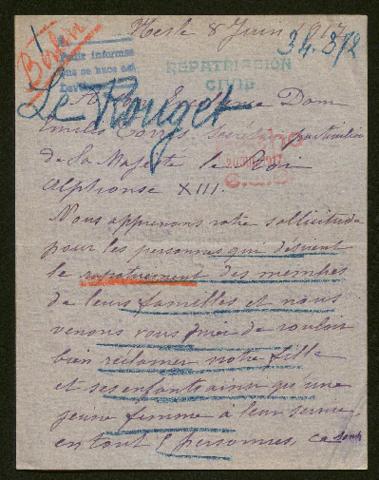 Berlin
Nesle 8 Juin 1917
34.372
Pedir informes
REPATRIACIÓN
CIVIL
Le Rouget
A Son Excellence Dom
Emilio Torres, Secrétaire particulier
de Sa Majesté le Roi
Alphonse XIII.
Nous apprenons votre sollicitude
pour les personnes qui désirent
le rapatriement des membres
de leurs familles et nous
venons vous prier de vouloir
bien réclamer notre fille
et ses enfants ainsi qu'une
jeune femme à leur service,
en tout 5 personnes, ce sont